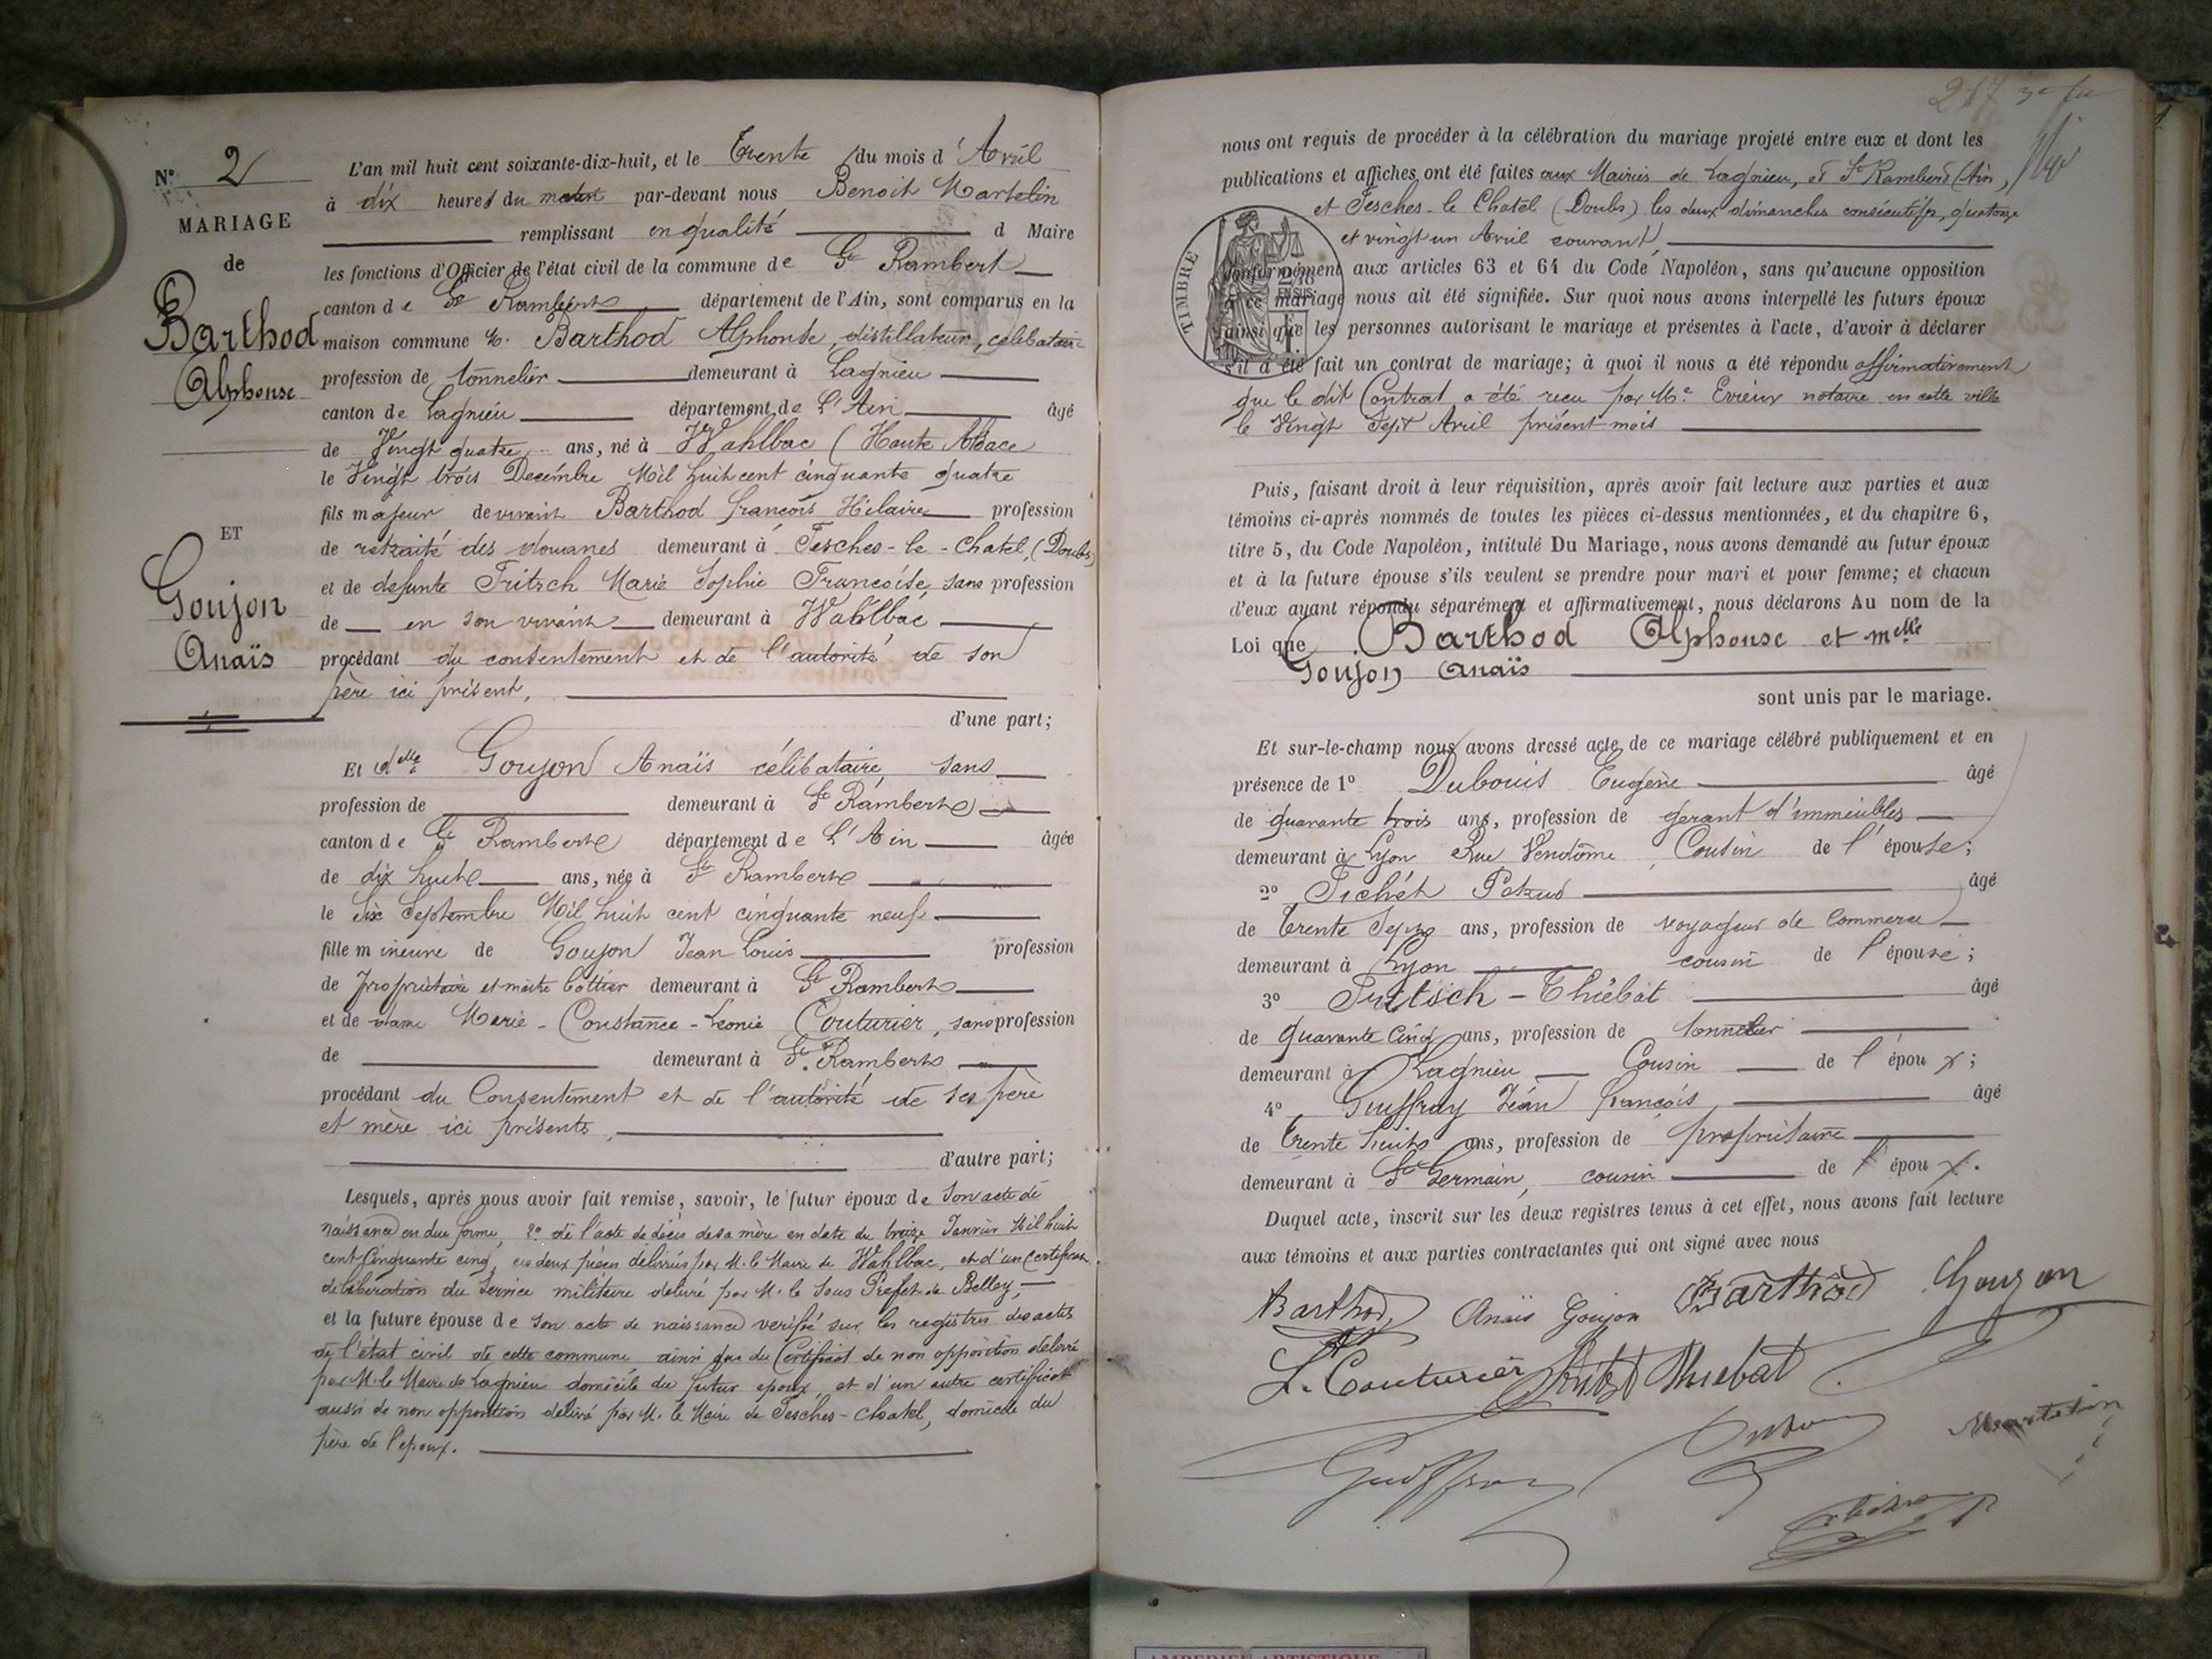 N° 2
MARIAGE
de
Barthod
Alphonse
ET
Goujon
Anaïs
L'an mil huit cent soixante-dix-huit, et le Trente du mois d'Avril
à dix heures du matin par-devant nous Benoit Martelin
remplissant en qualité d Maire
les fonctions d'Officier de l'état civil de la commune de St Rambert
canton de St Rambert département de l'Ain, sont comparus en la
maison commune Barthod Alphonse, distillateur, célibataire
profession de tonnelier demeurant à Lagnieu
canton de Lagnieu département de L'Ain âgé
de Vingt quatre ans, né à Wahlbac (Haute Alsace
le Vingt trois Decembre Mil huit cent cinquante quatre
fils majeur de vivant Barthod françois Hilaire profession
de retraité des douanes demeurant à Fesches-le-Chatel (Doubs)
et de defunte Fritsch Marie Sophie Françoise, sans profession
de en son vivant demeurant à Wahlbac
procédant du consentement et de l'autorité de son
père ici présent,
d'une part;
Et dlle Goujon Anaïs célibataire, sans
profession de demeurant à St Rambert
canton de St Rambert département de L'Ain âgée
de dix huit ans, née à St Rambert
le Six Septembre Mil huit cent cinquante neuf
fille mineure de Goujon Jean Louis profession
de propriétaire et maître bottier demeurant à St Rambert
et de dame Marie-Constance-Leonie Couturier, sans profession
de demeurant à St. Rambert
procédant du Consentement et de l'autorité de ses père
et mère ici présents,
d'autre part;
Lesquels, après nous avoir fait remise, savoir, le futur époux de Son acte de
naissance en due forme, 2° de l'acte de décès de sa mère en date du treize Janvier Mil huit
cent Cinquante cinq, ces deux pièces délivrés par M. le Maire de Wahlbac, et d'un Certificat
de libération du Service militaire délivré par M. le Sous Prefet de Belley,
et la future épouse de Son acte de naissance verifié sur les registres des actes
de l'état civil de cette commune ainsi que du Certificat de non opposition délivré
par M. le Maire de Lagnieu domicile du futur époux, et d'un autre certificat
aussi de non opposition délivré par M. le Maire de Fesches-Chatel, domicile du
père de l'époux.
217
nous ont requis de procéder à la célébration du mariage projeté entre eux et dont les
publications et affiches ont été faites aux Mairies de Lagnieu, et St Rambert (Ain,
et Fesches-le Chatel (Doubs) les deux dimanches consécutifs, quatorze
et vingt un Avril courant,
conformément aux articles 63 et 64 du Code Napoléon, sans qu'aucune opposition
à ce mariage nous ait été signifiée. Sur quoi nous avons interpellé les futurs époux
ainsi que les personnes autorisant le mariage et présentes à l'acte, d'avoir à déclarer
s'il a été fait un contrat de mariage; à quoi il nous a été répondu affirmativement
que le dit Contrat a été reçu par Me Evieux notaire en cette ville
le Vingt Sept Avril présent mois
TIMBRE
Puis, faisant droit à leur réquisition, après avoir fait lecture aux parties et aux
témoins ci-après nommés de toutes les pièces ci-dessus mentionnées, et du chapitre 6,
titre 5, du Code Napoléon, intitulé Du Mariage, nous avons demandé au futur époux
et à la future épouse s'ils veulent se prendre pour mari et pour femme; et chacun
d'eux ayant répondu séparément et affirmativement, nous déclarons Au nom de la
Loi que Barthod Alphonse et melle
Goujon Anaïs
sont unis par le mariage.
Et sur-le-champ nous avons dressé acte de ce mariage célébré publiquement et en
présence de 1° Dubouis Eugène âgé
de quarante trois ans, profession de gerant d'immeubles
demeurant à Lyon Rue Vendôme Cousin de l'épouse;
2° Pichét Petrus âgé
de Trente Sept ans, profession de voyageur de Commerce
demeurant à Lyon cousin de l'épouse;
3° Fritsch-Thiébat âgé
de quarante Cinq ans, profession de tonnelier
demeurant à Lagnieu Cousin de l'époux;
4° Guiffray Jean françois âgé
de Trente huit ans, profession de propriétaire
demeurant à St Germain, cousin de l'époux.
Duquel acte, inscrit sur les deux registres tenus à cet effet, nous avons fait lecture
aux témoins et aux parties contractantes qui ont signé avec nous
Barthod Anaïs Goujon Barthod Goujon
L. Couturier Thiebat
Guiffray Martelin
AMBERIEU ARTISTIQUE